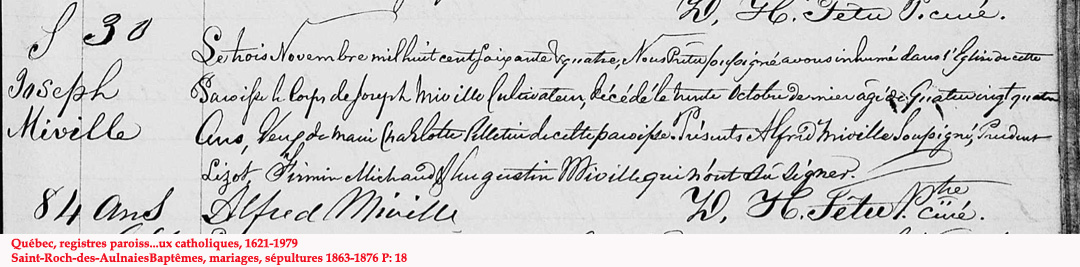 D, H. Têtu P. curé.
S 30
Le trois Novembre mil huit cent soixante & quatre, Nous Prêtre soussigné avons inhumé dans l'Eglise de cette
Joseph
Paroisse le Corps de Joseph Miville Cultivateur, décédé le trente Octobre dernier âgé de Quatre vingt quatre
Miville
Ans, Veuf de Marie Charlotte Pelletier de cette paroisse. Présents Alfred Miville Soussigné, Prudent
Lizot Firmin Michaud & Augustin Miville qui n'ont su signer.
84 Ans
Alfred Miville
D, H. Têtu Ptre curé.
Québec, registres paroiss...ux catholiques, 1621-1979
Saint-Roch-des-AulnaiesBaptêmes, mariages, sépultures 1863-1876 P: 18